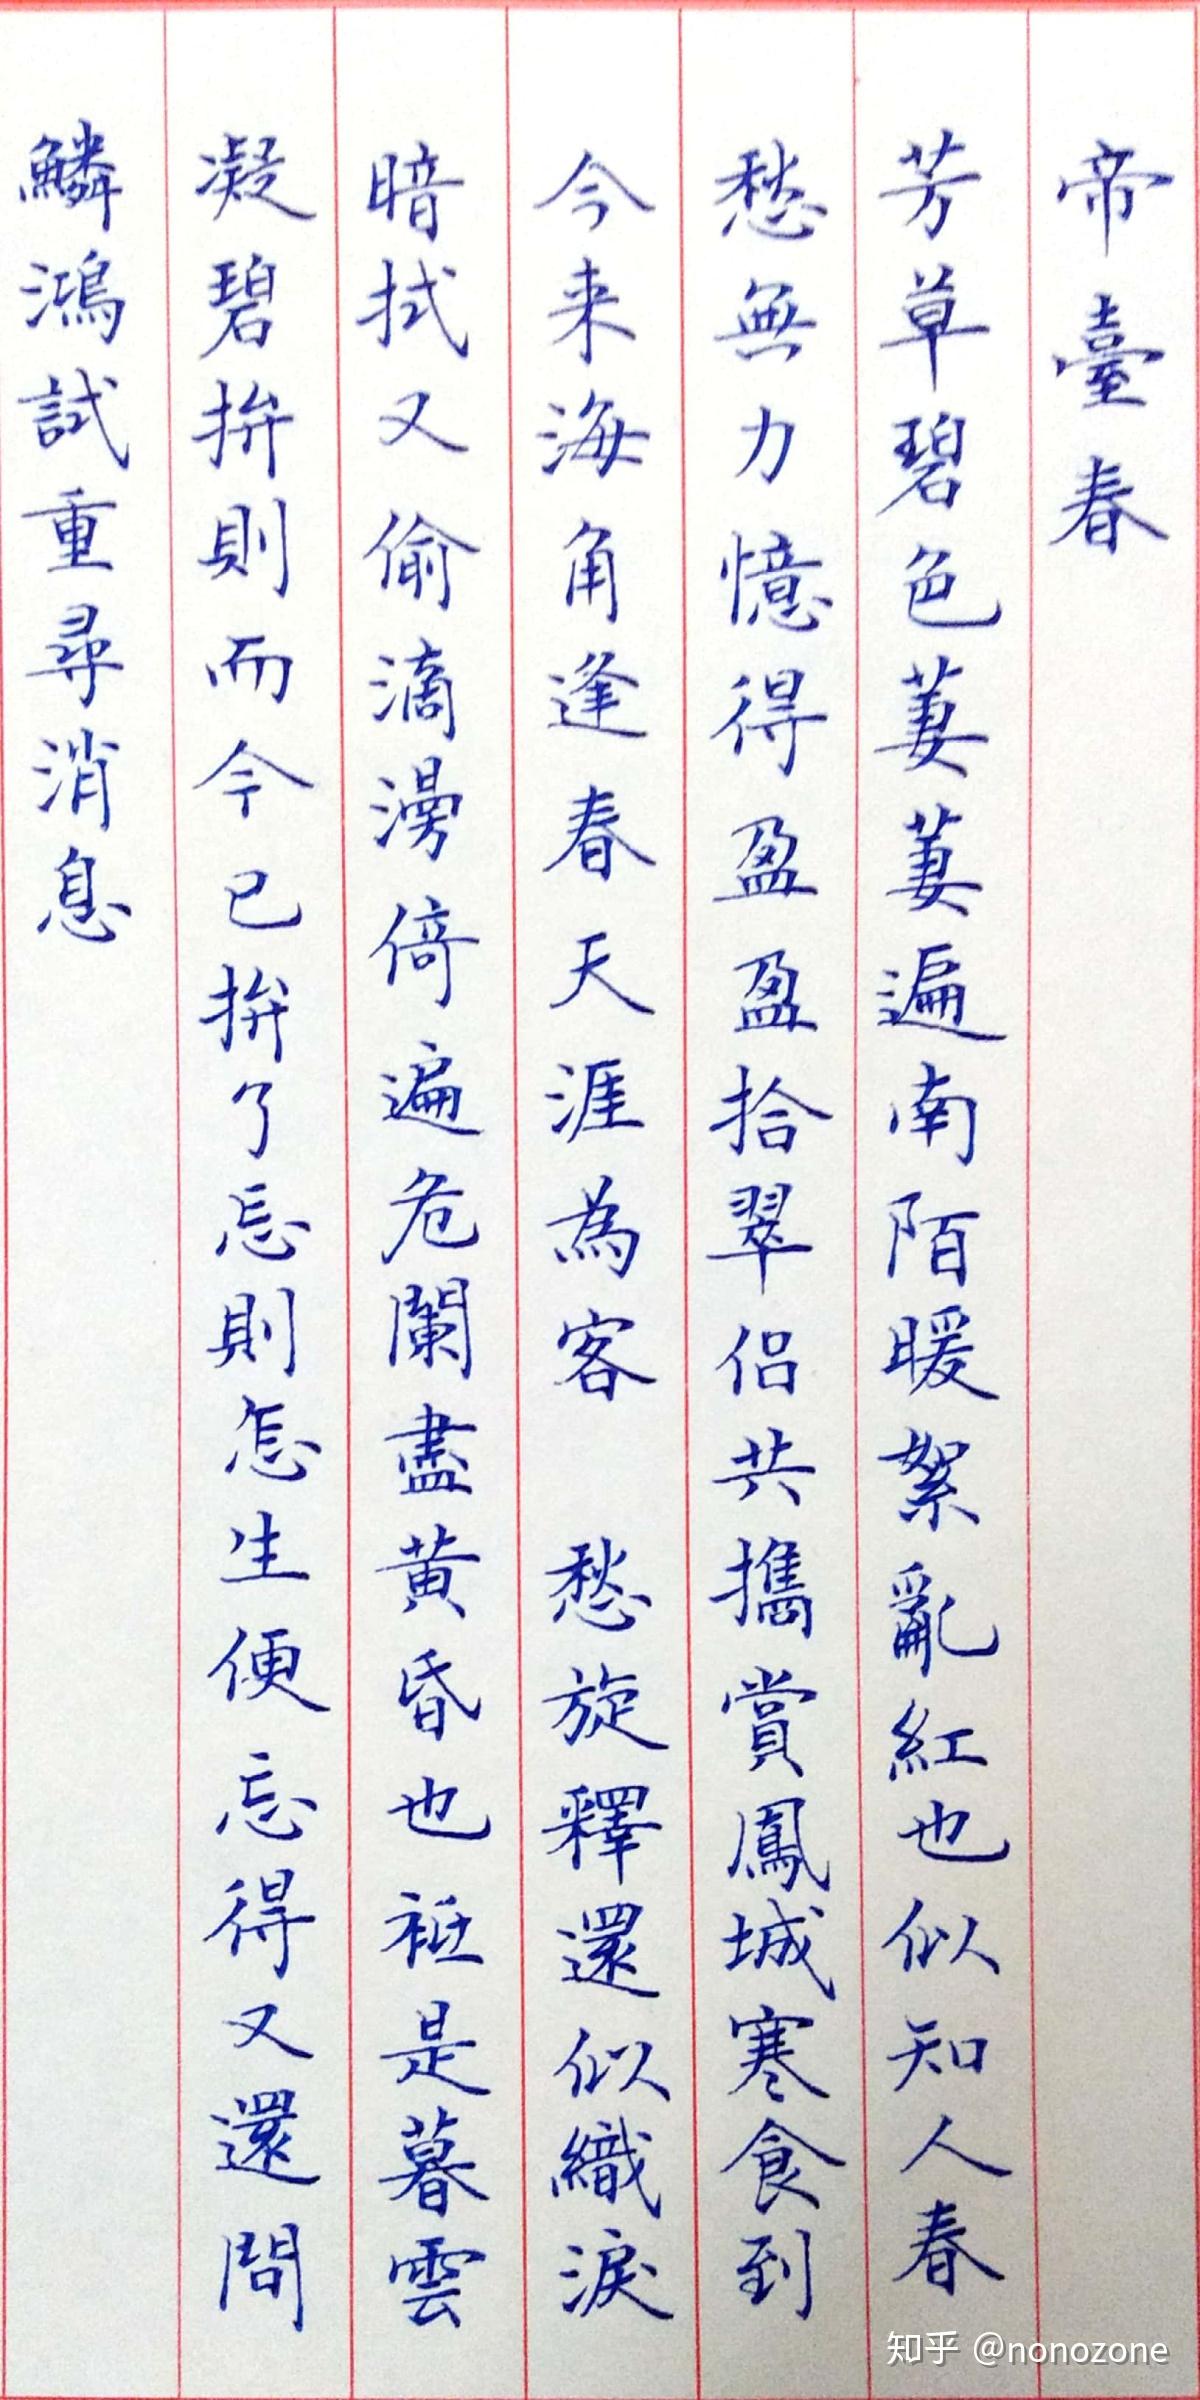 帝臺春
芳草碧色萋萋遍南陌暖絮亂紅也似知人春
愁無力憶得盈盈拾翠侶共攜賞鳳城寒食到
今来海角逢春天涯為客　愁旋釋還似織淚
暗拭又偷滴漫倚遍危闌盡黄昏也袛是暮雲
凝碧拚則而今已拚了忘則怎生便忘得又還問
鱗鴻試重尋消息
知乎 @nonozone